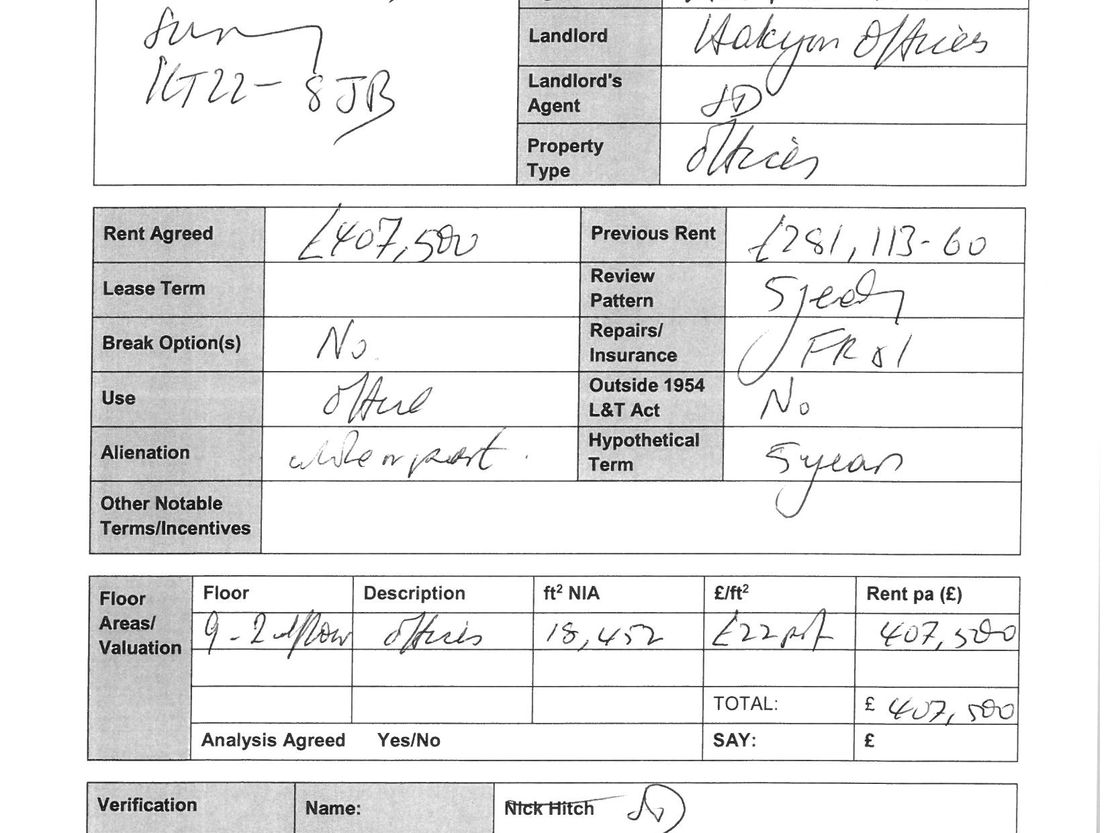 Surrey
KT22-8JB
Landlord Halcyon Offices
Landlord's
Agent
Property
Type Offices
Rent Agreed £407,500 Previous Rent £281,113-60
Lease Term Review
Pattern 5 yearly
Break Option(s) No Repairs/
Insurance FR &I
Use Office Outside 1954
L&T Act No
Alienation whole or part. Hypothetical
Term 5 years
Other Notable
Terms/Incentives
Floor
Areas/
Valuation
Floor Description ft² NIA £/ft² Rent pa (£)
offices 18,452 £22psf 407,500
TOTAL: £ 407,500
Analysis Agreed Yes/No SAY: £
Verification Name: Nick Hitch